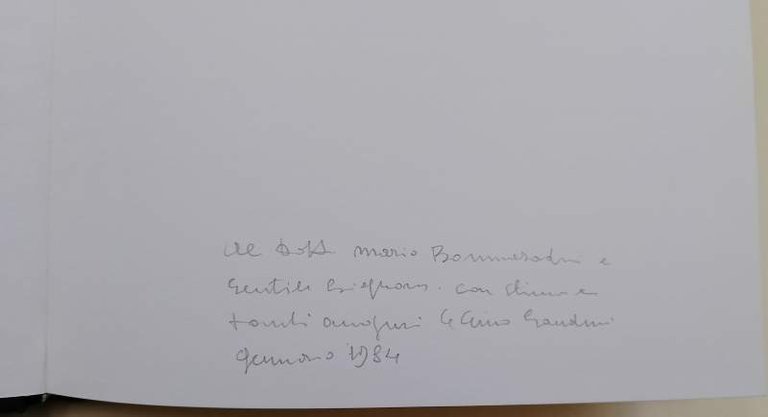 Al Dott. Mario Bommezadri e
Gentile Signora. con stima e
tanti auguri
Gennaio 1984